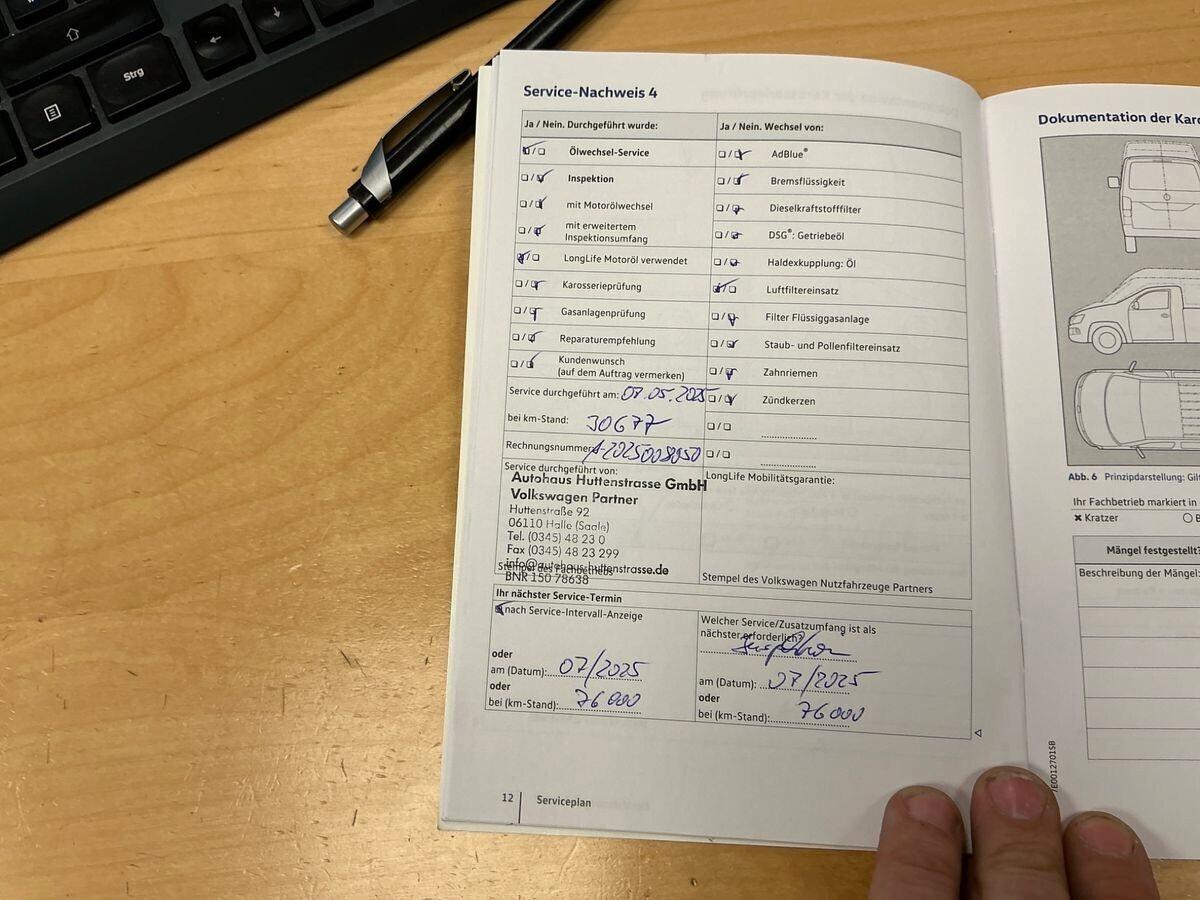 Strg
Service-Nachweis 4
Ja / Nein. Durchgeführt wurde:
Ölwechsel-Service
Inspektion
mit Motorölwechsel
mit erweitertem
Inspektionsumfang
LongLife Motoröl verwendet
Karosserieprüfung
Gasanlagenprüfung
Reparaturempfehlung
Kundenwunsch
(auf dem Auftrag vermerken)
Service durchgeführt am: 07.05.2025
bei km-Stand: 30677
Rechnungsnummer: A-2025008050
Service durchgeführt von:
Autohaus Huttenstrasse GmbH
Volkswagen Partner
Huttenstraße 92
06110 Halle (Saale)
Tel. (0345) 48 23 0
Fax (0345) 48 23 299
info@autohaus-huttenstrasse.de
Stempel des Fachbetriebs
BNR 150 78638
Ja / Nein. Wechsel von:
AdBlue®
Bremsflüssigkeit
Dieselkraftstofffilter
DSG®: Getriebeöl
Haldexkupplung: Öl
Luftfiltereinsatz
Filter Flüssiggasanlage
Staub- und Pollenfiltereinsatz
Zahnriemen
Zündkerzen
LongLife Mobilitätsgarantie:
Stempel des Volkswagen Nutzfahrzeuge Partners
Ihr nächster Service-Termin
nach Service-Intervall-Anzeige
oder
am (Datum): 07/2025
oder
bei (km-Stand): 76000
Welcher Service/Zusatzumfang ist als
nächster erforderlich?
Inspektion
am (Datum): 07/2025
oder
bei (km-Stand): 76000
12 Serviceplan
Dokumentation der
Abb. 6 Prinzipdarstellung:
Ihr Fachbetrieb markiert in
Kratzer
Mängel festgestellt?
Beschreibung der Mängel: